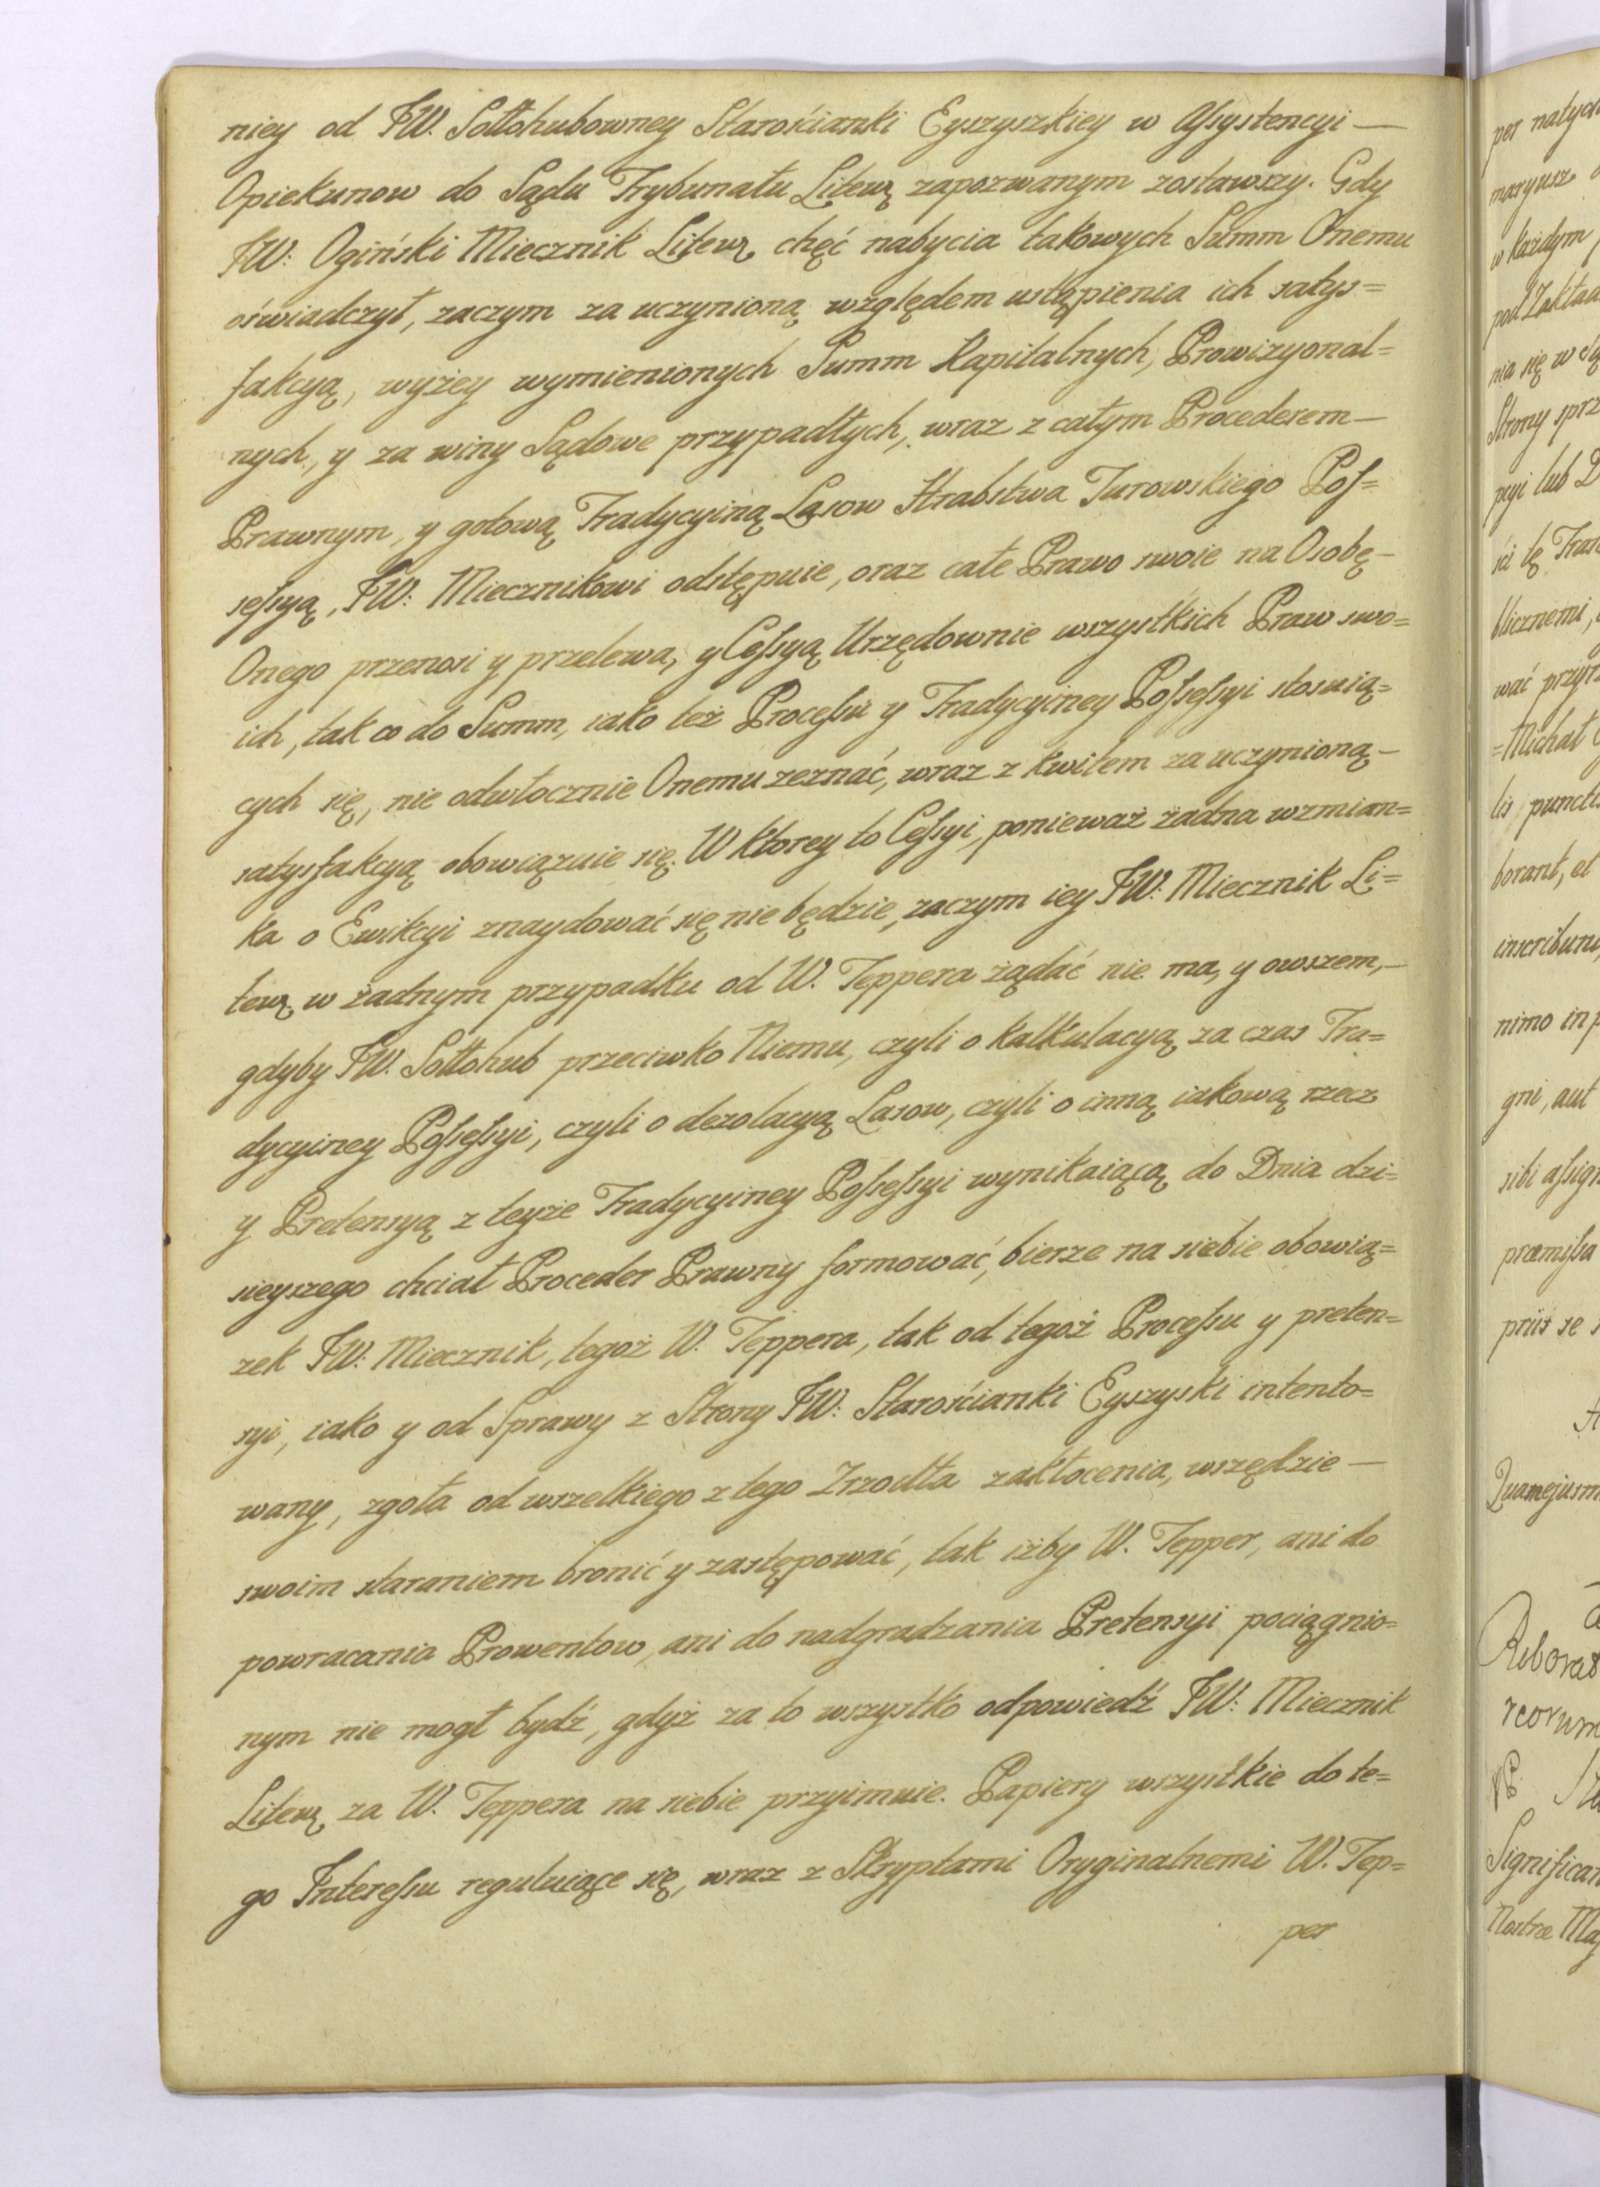 niey od JW. Sołłohubowney Starościanki Eyszyszkiey w Assystencyi —
Opiekunow do Sądu Trybunału Litew. zapozwanym zostawszy. Gdy
JW: Ogiński Miecznik Litew. chęć nabycia takowych Summ Onemu
oświadczył, zaczym za uczynioną względem ustąpienia ich satys=
fakcyą, wyżey wymienionych Summ Kapitalnych, Prowizyonal=
nych, y za winy Sądowe przypadłych, wraz z całym Procederem —
Prawnym, y gotową Tradycyiną Lasow Hrabstwa Turowskiego Pos=
sessyą, JW: Miecznikowi odstępuie, oraz całe Prawo swoie na Osobę —
Onego przenosi y przelewa, y Cessyą Urzędownie wszystkich Praw swo=
ich, tak co do Summ, iako też Processu y Tradycyiney Possessyi stosuią=
cych się, nie odwłocznie Onemu zeznać, wraz z kwitem za uczynioną —
satysfakcyą obowiązuie się. W ktorey to Cessyi, ponieważ żadna wzmian=
ka o Ewikcyi znaydować się nie będzie, zaczym iey JW: Miecznik Li=
tew. w żadnym przypadku od W. Teppera żądać nie ma, y owszem, —
gdyby JW. Sołłohub przeciwko Niemu, czyli o kalkulacyą za czas Tra=
dycyiney Possessyi, czyli o dezolacyą Lasow, czyli o inną iakową rzecz
y Pretensyą z teyże Tradycyiney Possessyi wynikaiącą do Dnia dzi=
sieyszego chciał Proceder Prawny formować, bierze na siebie obowią=
zek JW: Miecznik, tegoż W. Teppera, tak od tegoż Processu y preten=
syi, iako y od Sprawy z Strony JW: Starościanki Eyszyski intento=
wany, zgoła od wszelkiego z tego Zrzodła zakłocenia, wszędzie —
swoim staraniem bronić y zastępować, tak iżby W. Tepper, ani do
powracania Prowentow, ani do nadgradzania Pretensyi pociągnio=
nym nie mogł bydź, gdyż za to wszystko odpowiedź JW: Miecznik
Litew. za W. Teppera na siebie przyimuie. Papiery wszystkie do te=
go Interessu reguluiące się, wraz z Skryptami Oryginalnemi W. Tep=
per